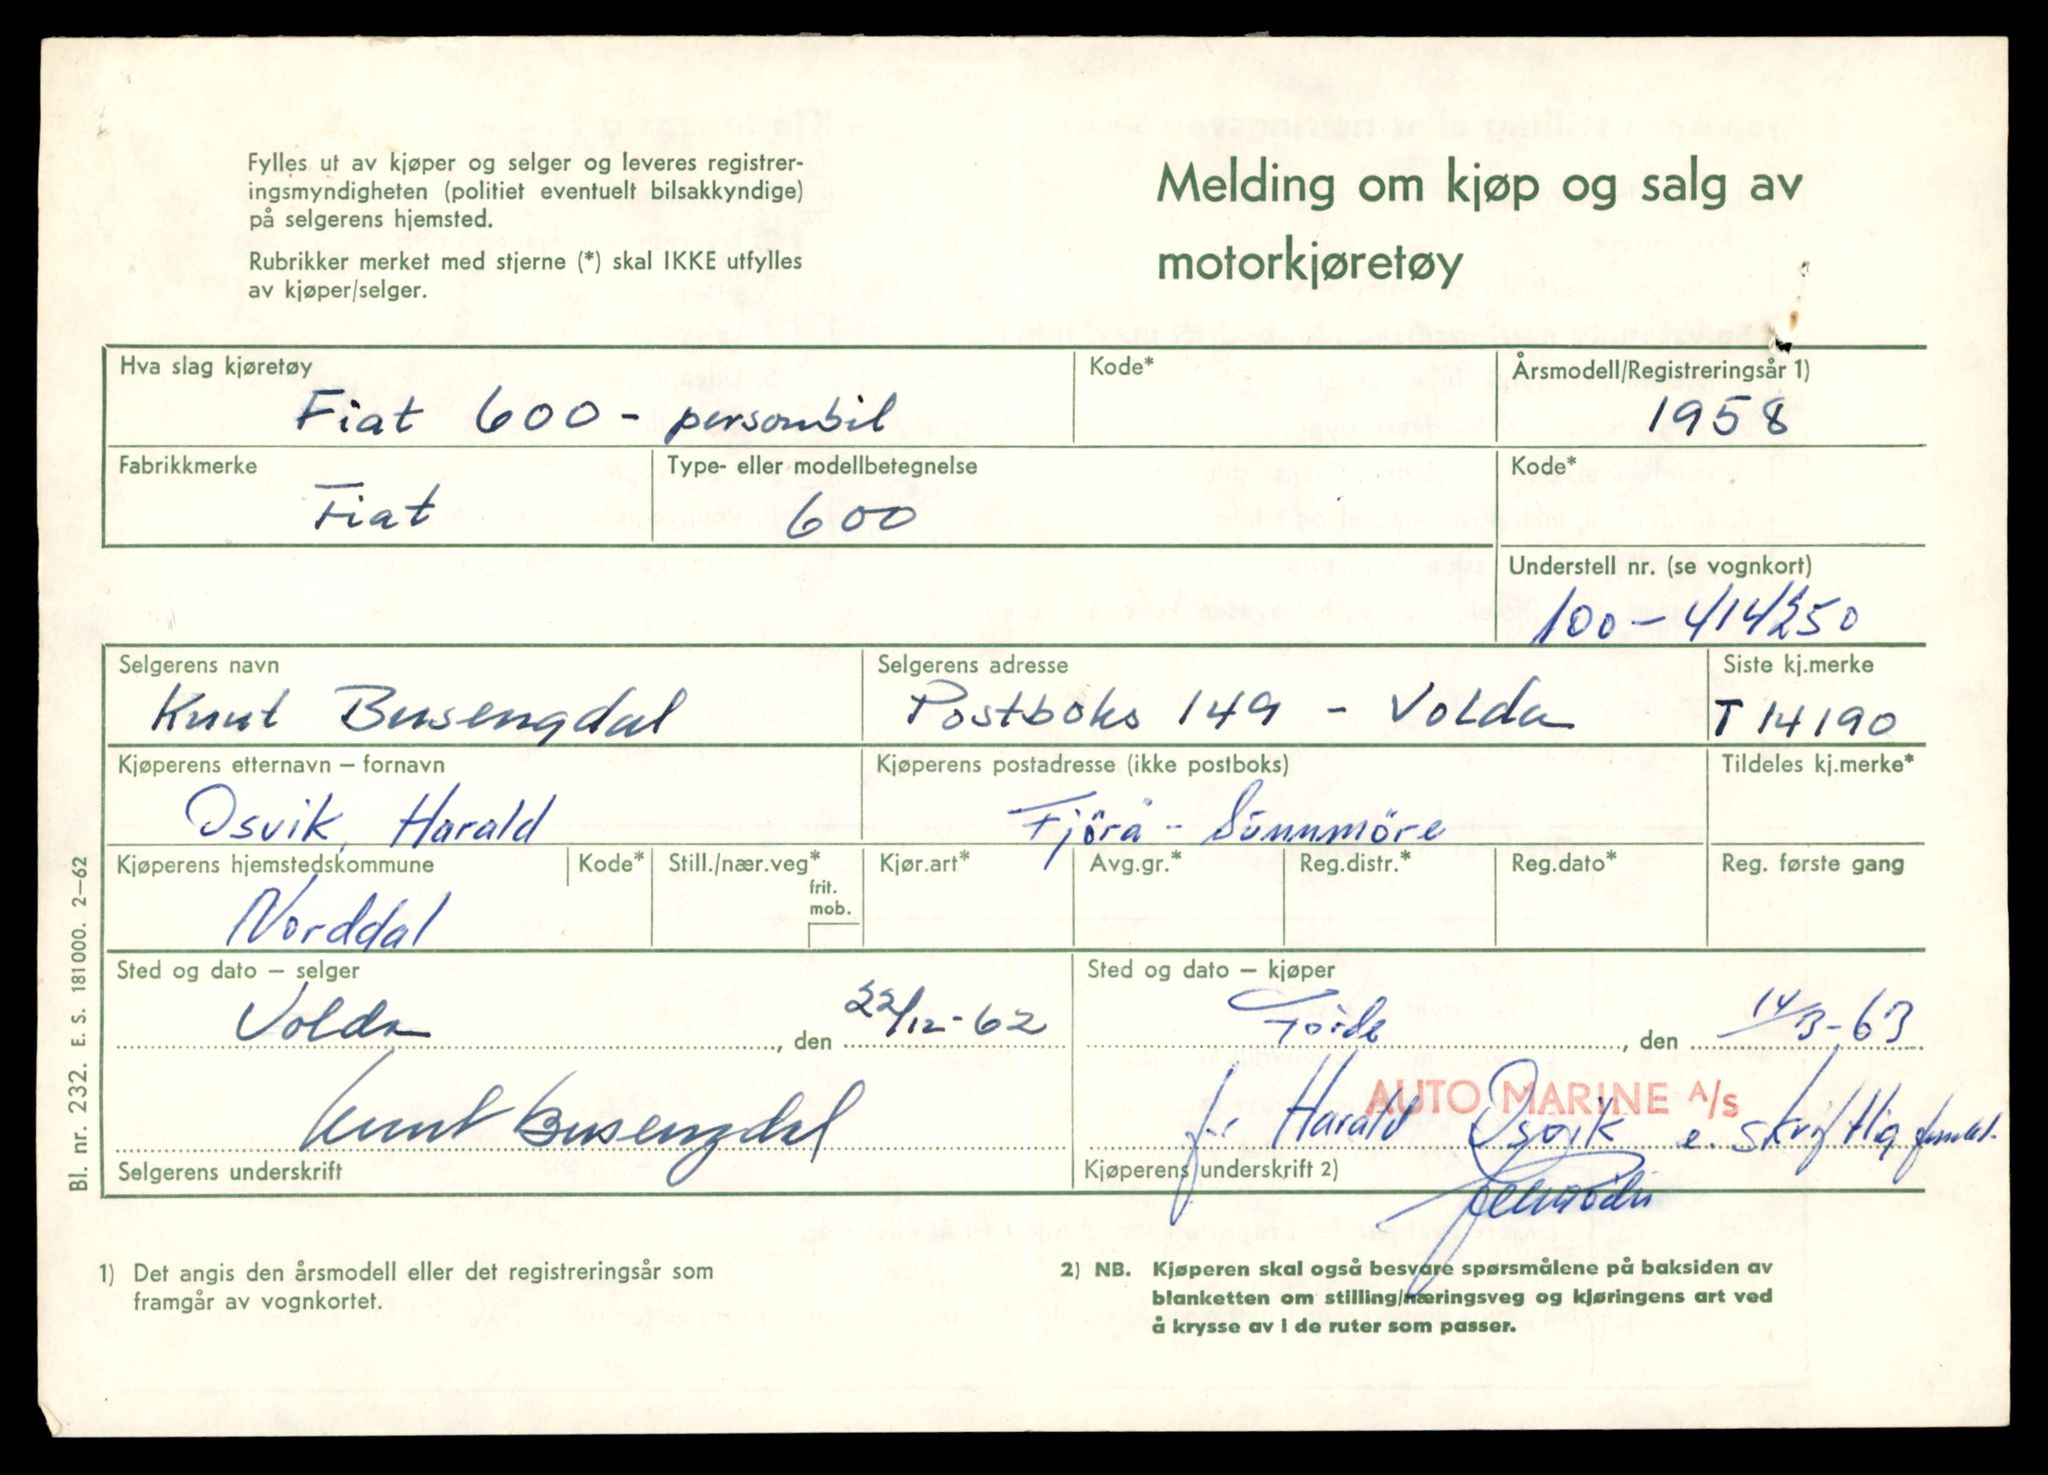 Fylles ut av kjøper og selger og leveres registrer-
ingsmyndigheten (politiet eventuelt bilsakkyndige)
på selgerens hjemsted.
Rubrikker merket med stjerne (*) skal IKKE utfylles
av kjøper/selger.
Melding om kjøp og salg av
motorkjøretøy
Hva slag kjøretøy Kode* Årsmodell/Registreringsår 1)
Fiat 600 - personbil 1958
Fabrikkmerke Type- eller modellbetegnelse Kode*
Fiat 600
Understell nr. (se vognkort)
100-414250
Selgerens navn Selgerens adresse Siste kj.merke
Knut Busengdal Postboks 149 - Volda T 14190
Kjøperens etternavn – fornavn Kjøperens postadresse (ikke postboks) Tildeles kj.merke*
Osvik, Harald Fjörå - Sunnmöre
Kjøperens hjemstedskommune Kode* Still./nær.veg* Kjør.art* Avg.gr.* Reg.distr.* Reg.dato* Reg. første gang
frit.
mob.
Norddal
Sted og dato – selger Sted og dato – kjøper
Volda, den 22/12-62 Förde, den 14/3-63
AUTO MARINE A/S
Knut Busengdal Harald Osvik e. skriftlig
Selgerens underskrift Kjøperens underskrift 2)
1) Det angis den årsmodell eller det registreringsår som
framgår av vognkortet.
2) NB. Kjøperen skal også besvare spørsmålene på baksiden av
blanketten om stilling/næringsveg og kjøringens art ved
å krysse av i de ruter som passer.
Bl. nr. 232. E. S. 181000. 2–62